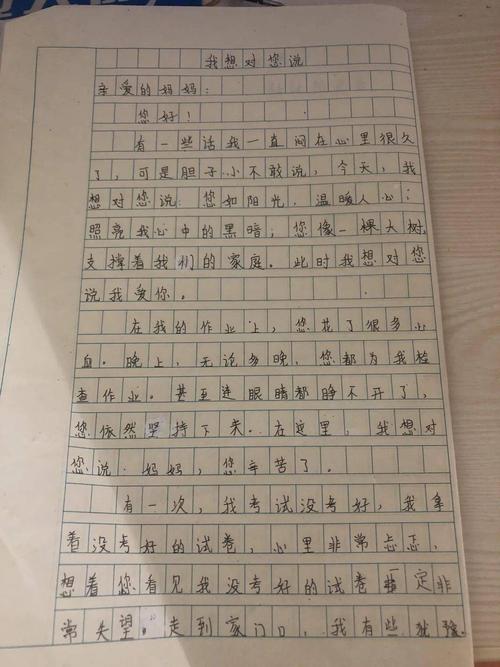 我想对您说
亲爱的妈妈：
您好！
有一些话我一直闷在心里很久
了，可是胆子小不敢说，今天，我
想对您说：您如阳光，温暖人心；
照亮我心中的黑暗；您像一棵大树，
支撑着我们的家庭。此时我想对您
说我爱你。
在我的作业上，您花了很多心
血。晚上，无论多晚，您都为我检
查作业。甚至连眼睛都睁不开了，
您依然坚持下来。在这里，我想对
您说：妈妈，您辛苦了。
有一次，我考试没考好，我拿
着没考好的试卷，心里非常忐忑，
想着您看见我没考好的试卷一定非
常失望。走到家门口，我有些犹豫。